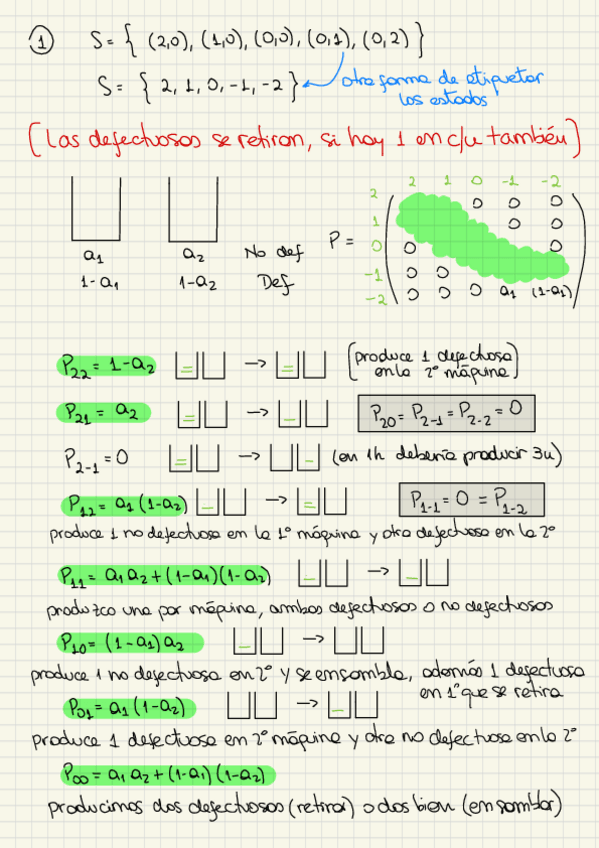 1 S = { (2,0), (1,0), (0,0), (0,1), (0,2) }
S = { 2, 1, 0, -1, -2 } ← otra forma de etiquetar
los estados
[Las defectuosas se retiran, si hay 1 en c/u también]
2 1 0 -1 -2
2 0 0 0
1 0 0
P = 0 0 0
a1 a2 No def
-1 0 0
1-a1 1-a2 Def
-2 0 0 0 a1 (1-a1)
P22 = 1-a2 = → = (produce 1 defectuosa
en la 2º máquina)
P21 = a2 = → - P20 = P2-1 = P2-2 = 0
P2-1 = 0 = → - (en 1h debería producir 3u)
P12 = a1 (1-a2) - → = P1-1 = 0 = P1-2
produce 1 no defectuosa en la 1º máquina y otra defectuosa en la 2º
P11 = a1 a2 + (1-a1)(1-a2) - → -
produzco una por máquina, ambas defectuosas o no defectuosas
P10 = (1-a1) a2 - →
produce 1 no defectuosa en 2º y se ensambla, además 1 defectuosa
en 1º que se retira
P01 = a1 (1-a2) → -
produce 1 defectuosa en 2º máquina y otra no defectuosa en la 2º
P00 = a1 a2 + (1-a1) (1-a2)
producimos dos defectuosas (retirar) o dos bien (ensamblar)